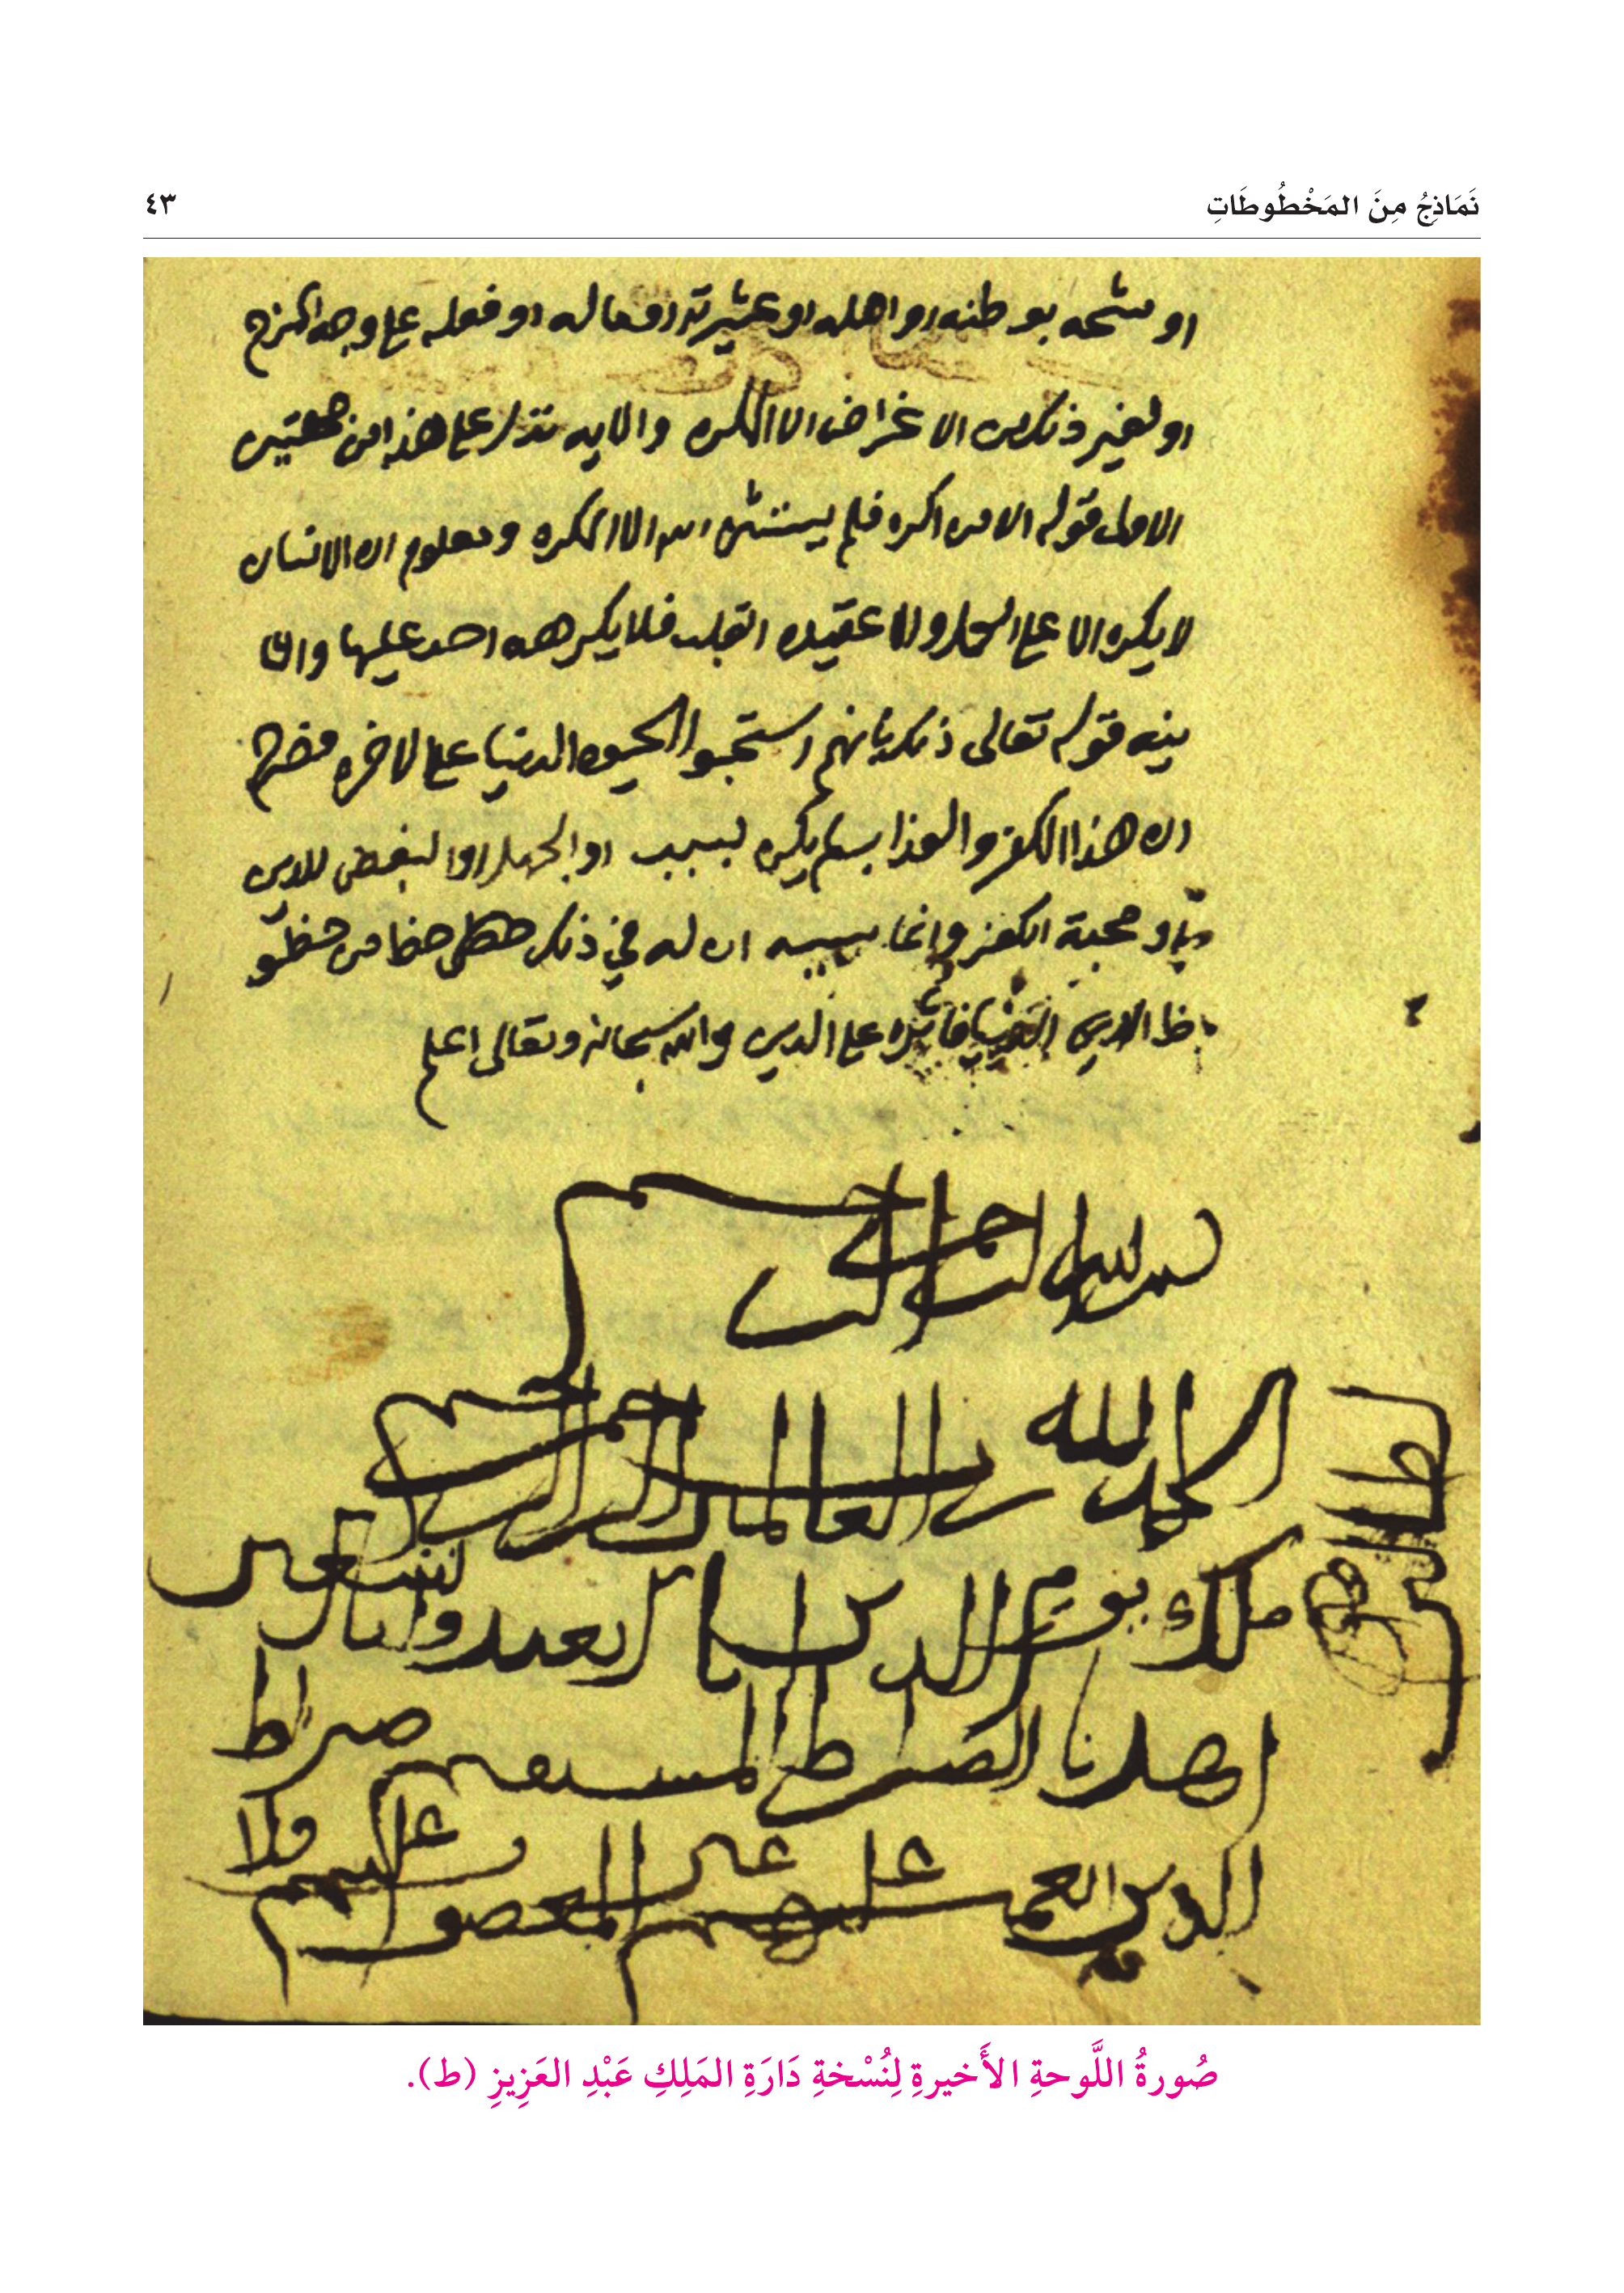 نَمَاذِجُ مِنَ المَخْطُوطَاتِ
٤٣
او مشحه بوطنه او اهله او عشيرته او ماله او فعله على وجه المزح
او لغير ذلك من الاغراض الا المكره والايه تدل على هذا من جهتين
الاولى قوله الا من اكره فلم يستثن الله الا المكره ومعلوم ان الانسان
لا يكره الا على العمل والا عقيده القلب فلا يكرهه احد عليها والثا
نيه قوله تعالى ذلك بانهم استحبوا الحيوه الدنيا على الاخره فصرح
ان هذا الكفر والعذاب لم يكن بسبب او الجهل او البغض للدين
او محبة الكفر وانما سببه ان له في ذلك حظا من حظو
ظ الدنيا فاثره على الدين والله سبحانه وتعالى اعلم
بسم الله الرحمن الرحيم
الحمد لله رب العالمين الرحمن الرحيم
ملك يوم الدين اياك نعبد واياك نستعين
اهدنا الصراط المستقيم صراط
الذين انعمت عليهم غير المغضوب عليهم ولا
صُورةُ اللَّوحةِ الأَخيرةِ لِنُسْخةِ دَارَةِ المَلِكِ عَبْدِ العَزِيزِ (ط).